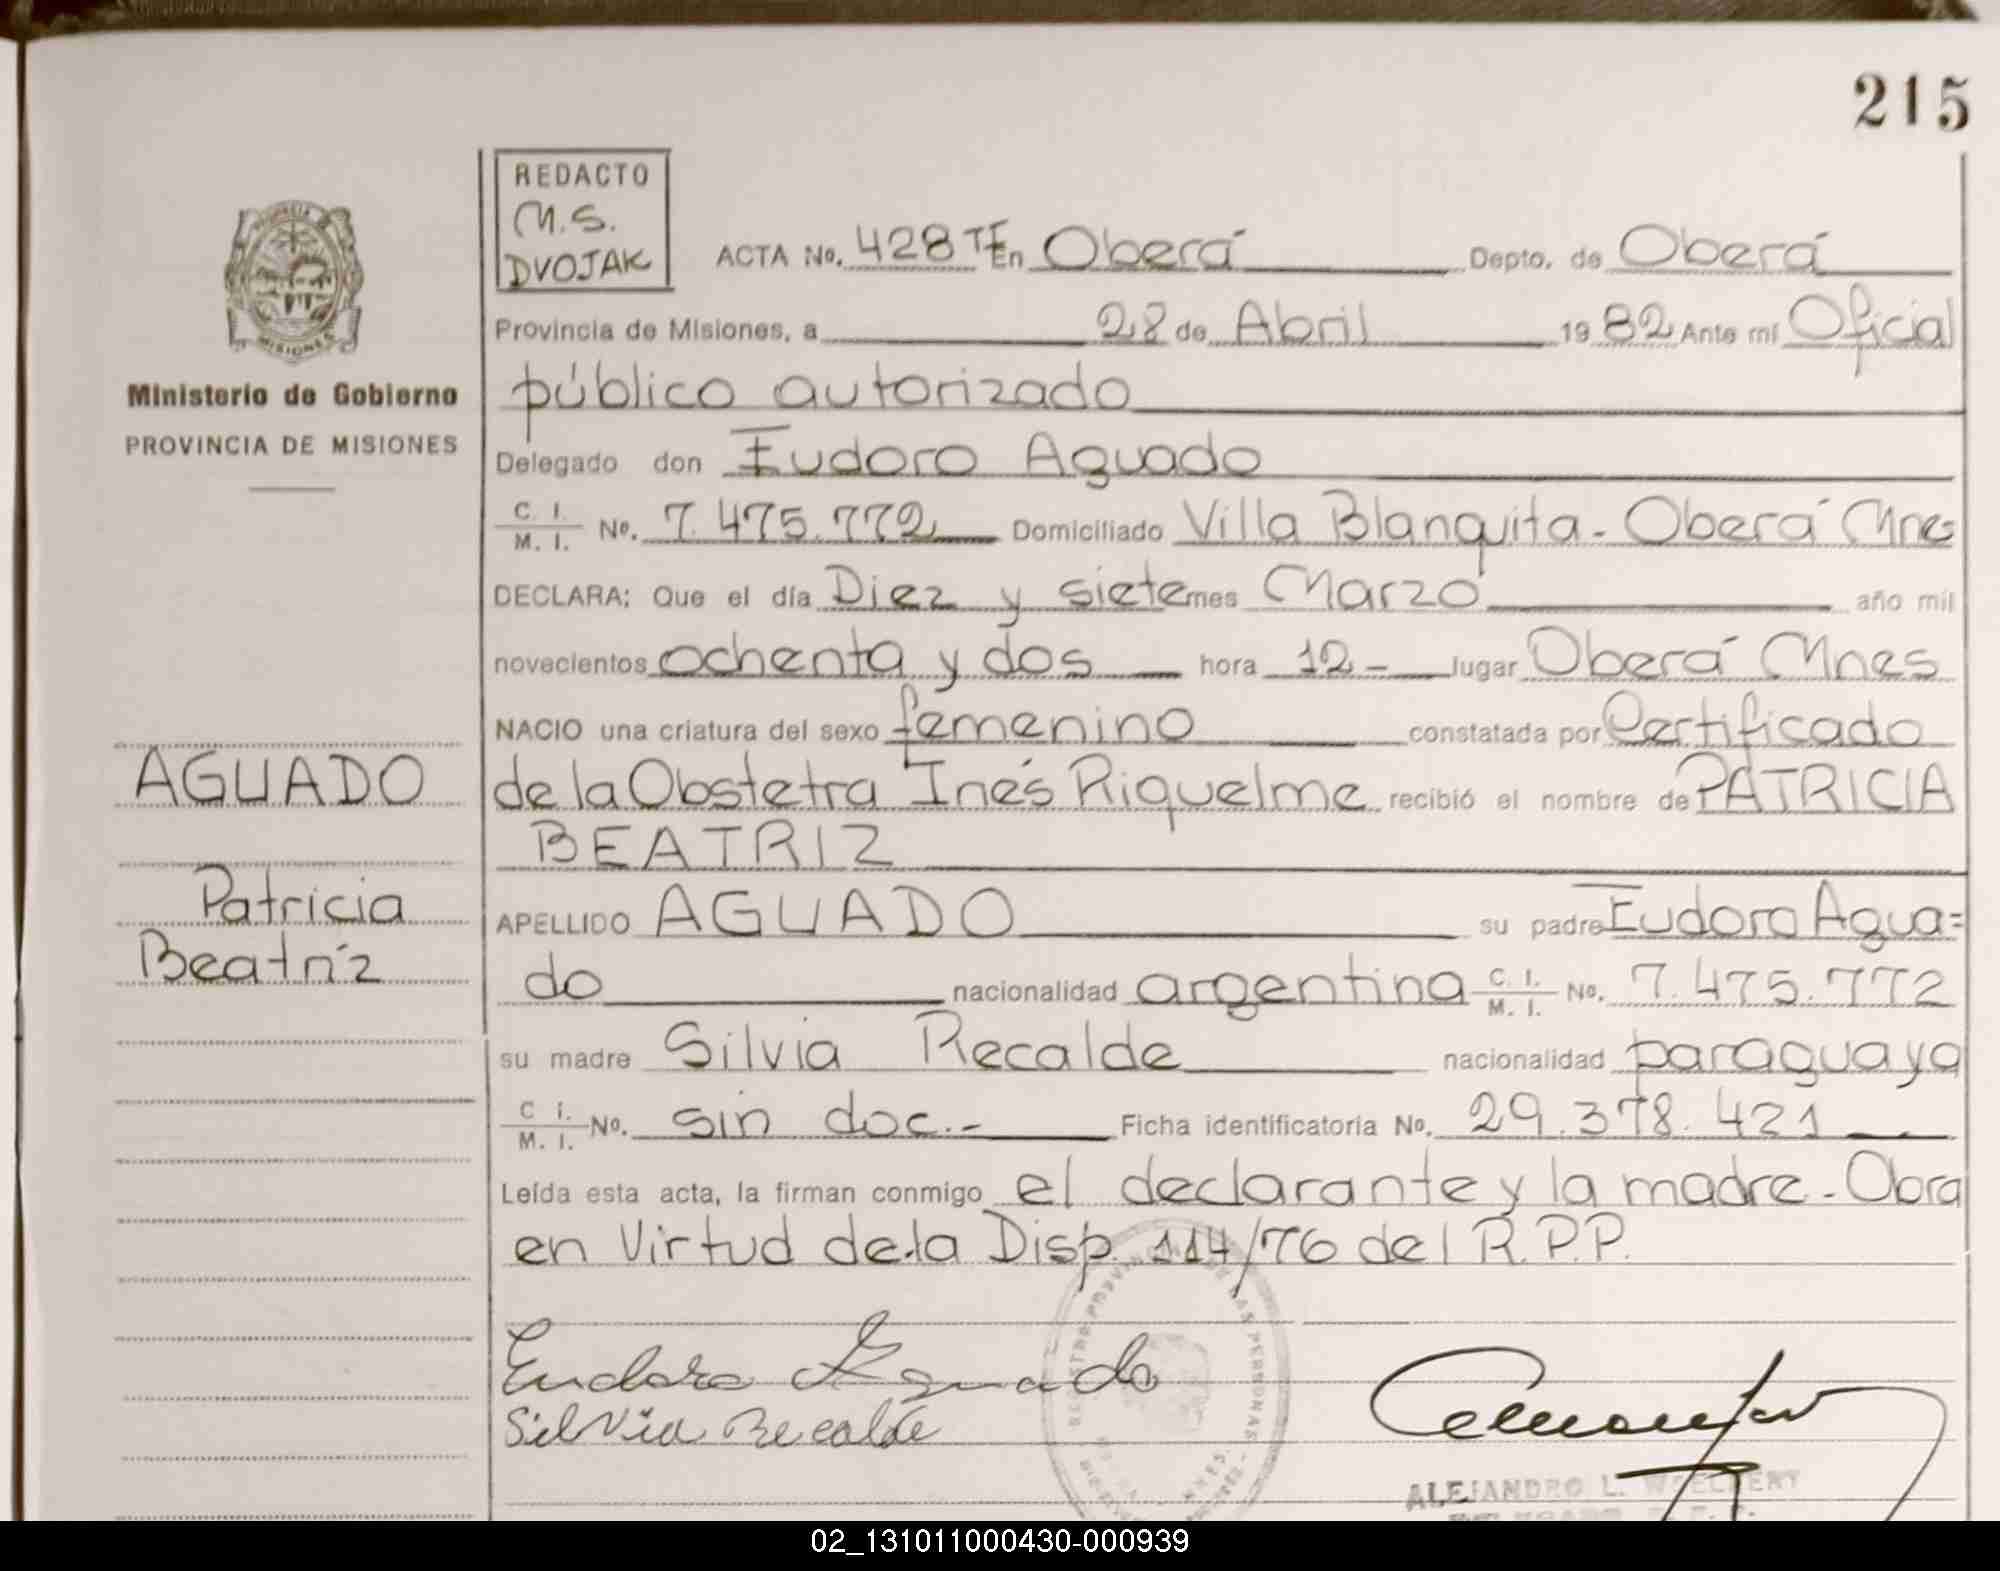 215
REDACTO
M.S.
DVOJAK
ACTA No. 428 TE En Oberá Depto. de Oberá
Provincia de Misiones, a 28 de Abril 1982 Ante mí Oficial
público autorizado
Delegado don Eudoro Aguado
C. I. / M. I. No. 7.475.772 Domiciliado Villa Blanquita - Oberá Mnes
DECLARA: Que el día Diez y siete mes Marzo año mil
novecientos ochenta y dos hora 12 - lugar Oberá Mnes
NACIO una criatura del sexo femenino constatada por Certificado
de la Obstetra Inés Riquelme recibió el nombre de PATRICIA
BEATRIZ
APELLIDO AGUADO su padre Eudoro Agua=
do nacionalidad argentina C. I. / M. I. No. 7.475.772
su madre Silvia Recalde nacionalidad paraguaya
C. I. / M. I. No. sin doc.- Ficha identificatoria No. 29.378.421
Leída esta acta, la firman conmigo el declarante y la madre - Obra
en Virtud de la Disp. 114/76 del R.P.P.
Eudoro Aguado
Silvia Recalde
ALEJANDRO L.
MISIONES
Ministerio de Gobierno
PROVINCIA DE MISIONES
AGUADO
Patricia
Beatriz
02_131011000430-000939